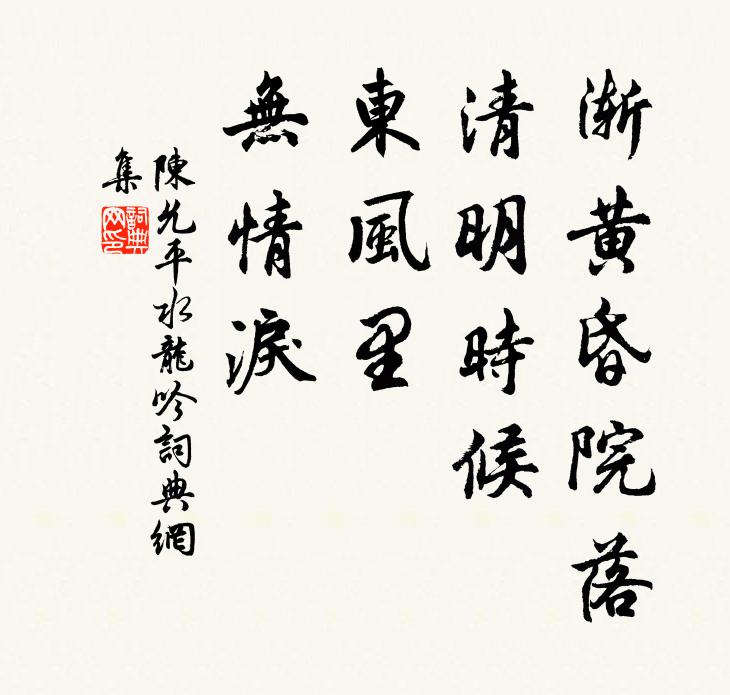 漸黄昏院落
清明時候
東風里
無情淚
陳允平水龍吟詞典網
集
詞典网印